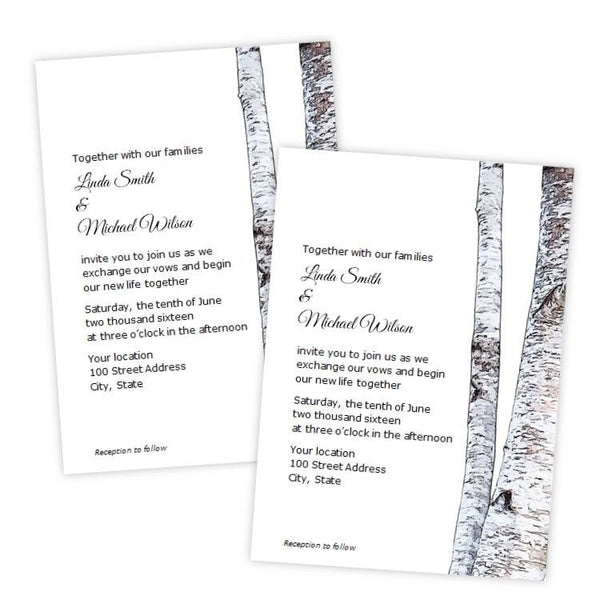 Together with our families
Linda Smith
&
Michael Wilson
invite you to join us as we
exchange our vows and begin
our new life together
Saturday, the tenth of June
two thousand sixteen
at three o'clock in the afternoon
Your location
100 Street Address
City, State
Reception to follow
Together with our families
Linda Smith
&
Michael Wilson
invite you to join us as we
exchange our vows and begin
our new life together
Saturday, the tenth of June
two thousand sixteen
at three o'clock in the afternoon
Your location
100 Street Address
City, State
Reception to follow